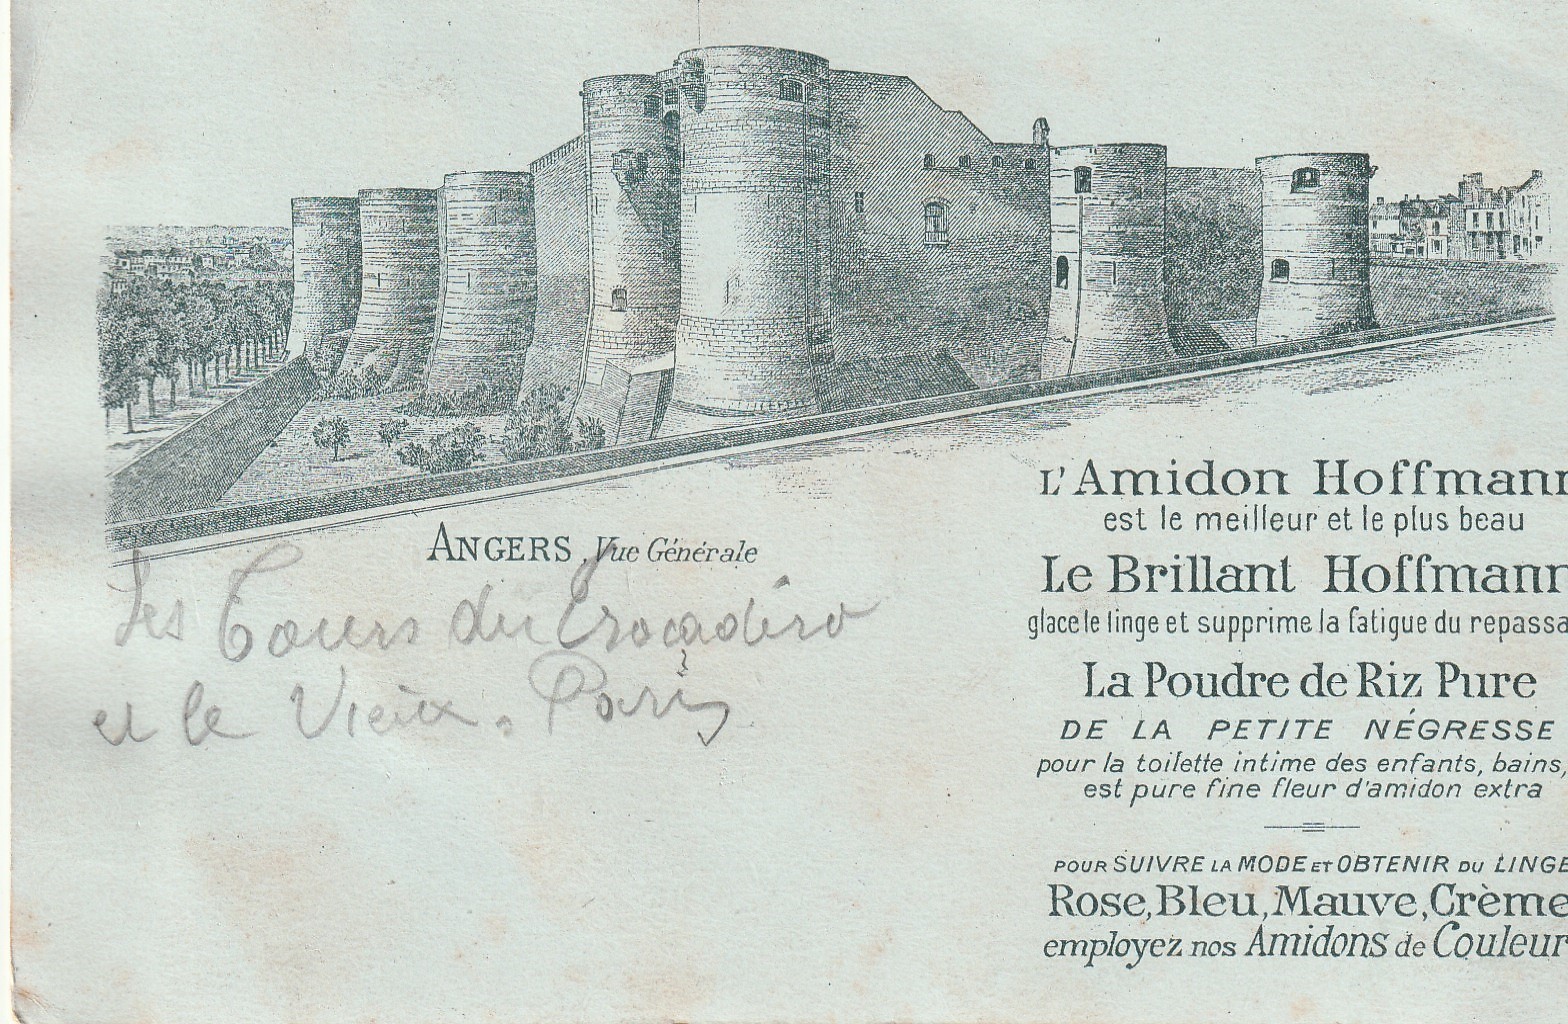 ANGERS, Vue Générale
Les Tours du Trocadéro
et le Vieux. Paris
L'Amidon Hoffmann
est le meilleur et le plus beau
Le Brillant Hoffmann
glace le linge et supprime la fatigue du repassa
La Poudre de Riz Pure
DE LA PETITE NÉGRESSE
pour la toilette intime des enfants, bains,
est pure fine fleur d'amidon extra
POUR SUIVRE LA MODE ET OBTENIR DU LINGE
Rose, Bleu, Mauve, Crème
employez nos Amidons de Couleur